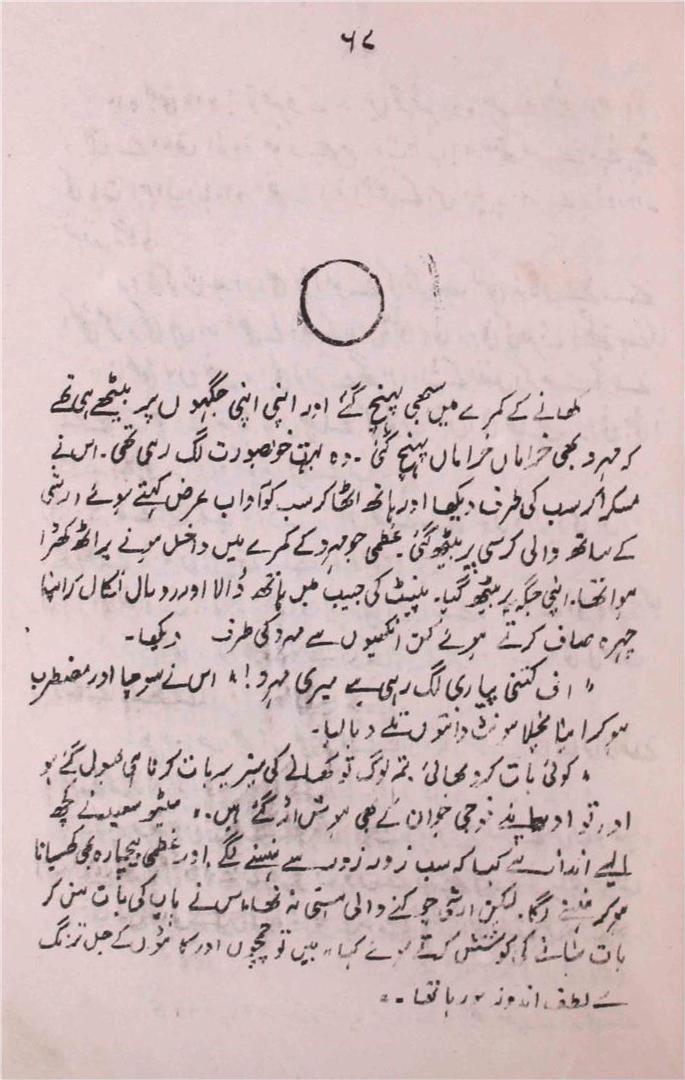 ۶۷
کھانے کے کمرے میں سبھی پہنچ گئے اور اپنی اپنی جگہوں پر بیٹھے ہی تھے
کہ مہرو بھی خراماں خراماں پہنچ گئی۔ وہ بہت خوبصورت لگ رہی تھی۔ اس نے
مسکرا کر سب کی طرف دیکھا اور ہاتھ اٹھا کر سب کو آداب عرض کہتے ہوئے ارشی
کے ساتھ والی کرسی پر بیٹھ گئی۔ عظمی جو مہرو کے کمرے میں داخل ہونے پر اٹھ کھڑا
ہوا تھا۔ اپنی جگہ پر بیٹھ گیا۔ پینٹ کی جیب میں ہاتھ ڈالا اور رومال نکال کر اپنا
چہرہ صاف کرتے ہوئے کن انکھیوں سے مہرو کی طرف دیکھا۔
"اف کتنی پیاری لگ رہی ہے میری مہرو!" اس نے سوچا اور مضطرب
ہو کر اپنا نچلا ہونٹ دانتوں تلے دبا لیا۔
"کوئی بات کرو بھائی تم لوگ تو کھانے کی میز پر بات کرنا ہی بھول گئے ہو
اور تو اور اپنے فوجی جوان کے بھی ہوش اڑ گئے ہیں۔" میجر سعید نے کچھ
ایسے انداز سے کہا کہ سب زور زور سے ہنسنے لگے اور عظمی بیچارہ بھی کھسیانا
ہو کر ہنسنے لگا۔ لیکن ارشی چوکنے والی ہستی نہ تھا، اس نے باپ کی بات سن کر
بات بنانے کی کوشش کرتے ہوئے کہا "میں تو چمچوں اور کانٹوں کے جل ترنگ
سے لطف اندوز ہو رہا تھا۔"